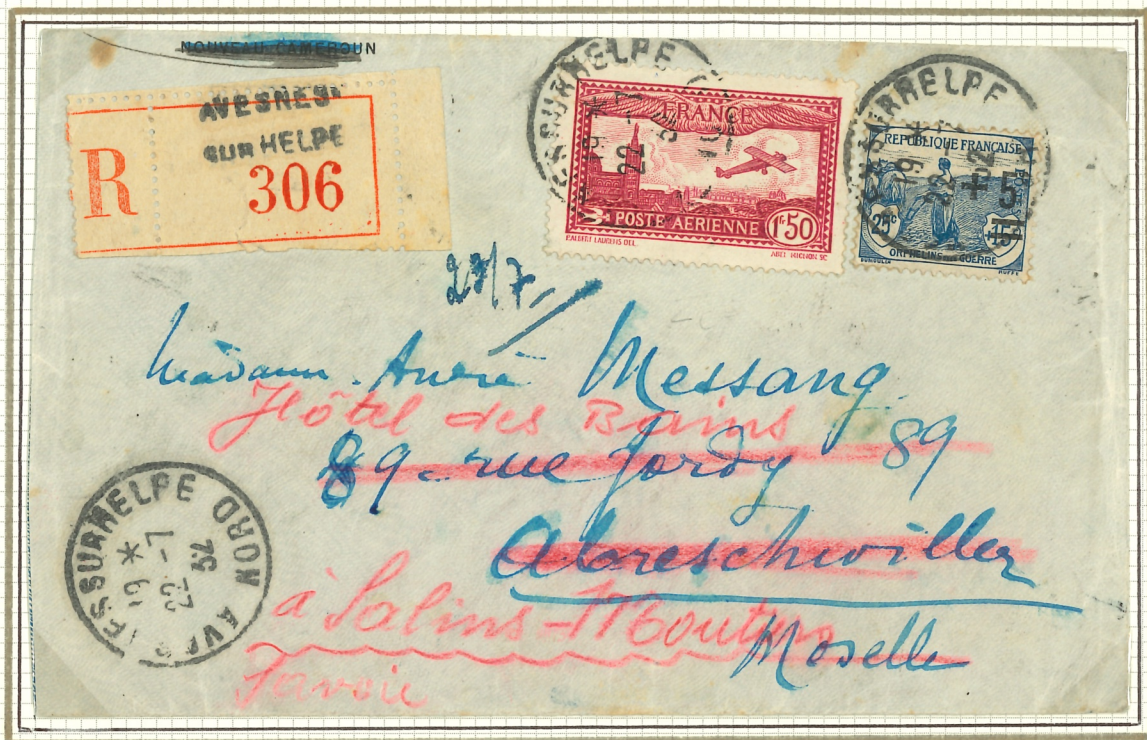 NOUVEAU-CAMEROUN
AVESNES-
SUR HELPE
R 306
FRANCE
POSTE AÉRIENNE 1F50
ALBERT LAUGENS DEL.
ABEL MIGNON SC
REPUBLIQUE FRANÇAISE
POSTES
+5c
25c +15c
ORPHELINS DE LA GUERRE
DUMOULIN RUFFE
AVESNES SUR HELPE
19 *
22 -7
32
SURHELPE
19 *
22 -7
32
23/7
Madame André Messang
Hôtel des Bains
89 - rue Jordy 89
Abreschwiller
à Salins-Moutiers
Moselle
Savoie
AVESNES SUR HELPE NORD
19 *
22 -7
32